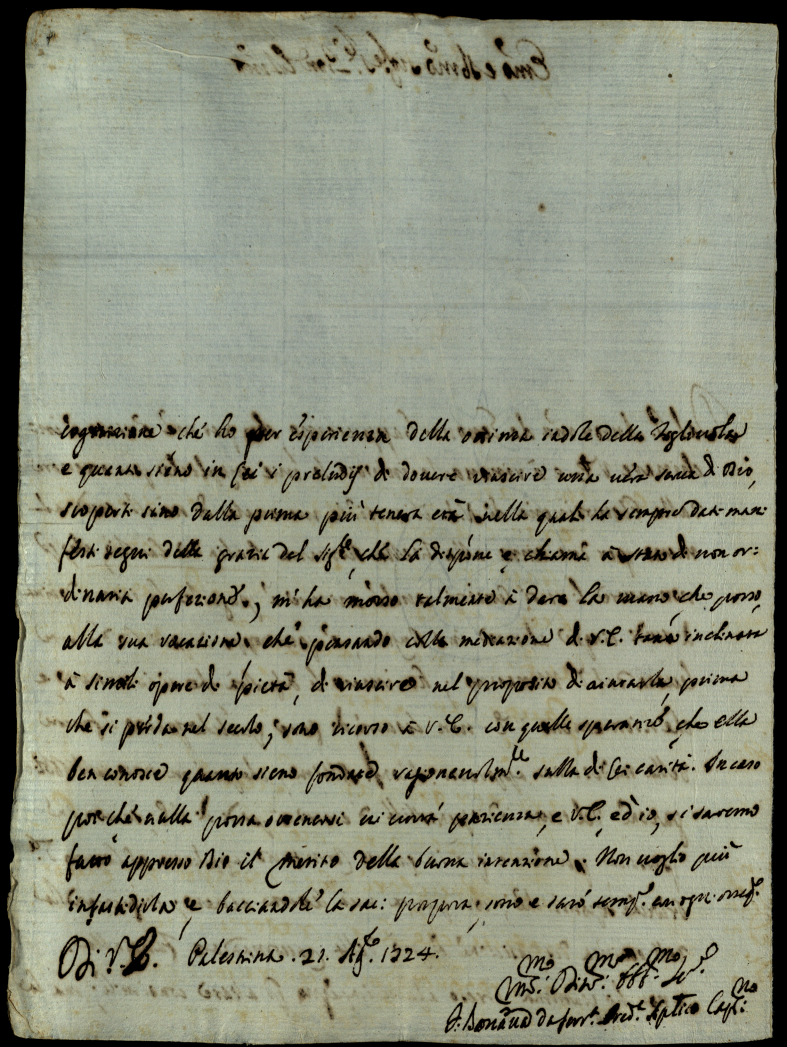 cognizione che ho per esperienza della ottima indole della Figliuola
e quanti siano in Lei i preludij di dovere riuscire una vera serva di Dio,
scoperti sino dalla prima più tenera età nella quale ha sempre dati mani-
festi segni della grazia del Sig.re che la dispone e chiama à stato di non or:
dinaria perfezione, m'ha mosso talmente à dare la mano che posso
alla sua vocazione che pensando colla mediazione di V.E. tanto inclinata
à simili opere di pietà, di riuscire nel proposito di aiutarla, prima
che si perda nel secolo, sono ricorso à V.E. con quelle speranze, che ella
ben conosce quanto sieno fondate ragionevolm.te sulla di Lei carità. In caso
poi che nulla possa ottenersi ci vorrà pazienza, e V.E. ed io, si saremo
fatto appresso Dio il merito della buona intenzione. Non voglio più
infastidirla, e bacciandole la sac: porpora, sono e sarò semp.e con ogni osseq.o
Di V.E. Palestrina . 21 . Ag.to 1724.
Um.o Div.mo Obb.mo Se.e
F. Bon. da Capp.no